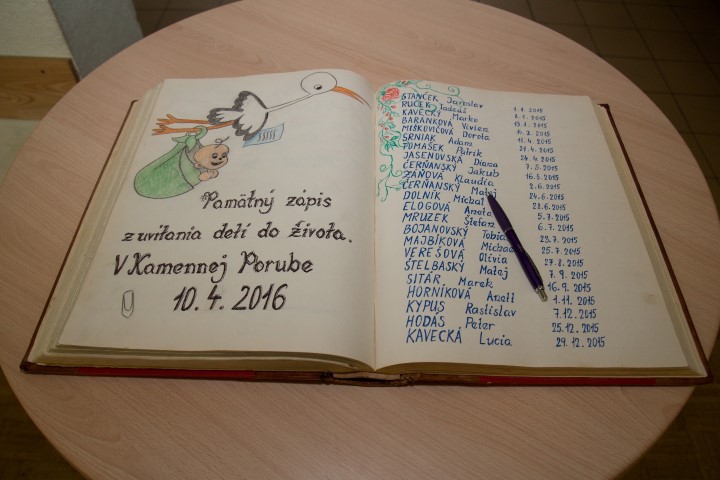 Pamätný zápis
z uvítania detí do života.
V Kamennej Porube
10. 4. 2016
STANČEK Jaroslav 1. 1. 2015
RUČEK Tadeáš 8. 1. 2015
KAVECKÝ Marko 15. 1. 2015
BARÁNKOVÁ Vivien 14. 2. 2015
MIŠKOVIČOVÁ Dorota 11. 4. 2015
SRNIAK Adam 21. 4. 2015
TOMAŠEK Patrik 24. 4. 2015
JASENOVSKÁ Diana 7. 5. 2015
ČERŇANSKÝ Jakub 16. 5. 2015
ZÁŇOVÁ Klaudia 2. 6. 2015
ČERŇANSKÝ Matej 24. 6. 2015
DOLNÍK Michal 28. 6. 2015
ELOGOVÁ 5. 7. 2015
MRUZEK Štefan 6. 7. 2015
BOJANOVSKÝ Tobia 23. 7. 2015
MAJBÍKOVÁ 25. 7. 2015
VEREŠOVÁ Olívia 27. 8. 2015
ŠTELBASKÝ Matej 7. 9. 2015
SITÁR Marek 16. 9. 2015
HORNÍKOVÁ Anett 1. 11. 2015
KYPUS Rastislav 7. 12. 2015
HODÁS Peter 25. 12. 2015
KAVECKÁ Lucia 29. 12. 2015